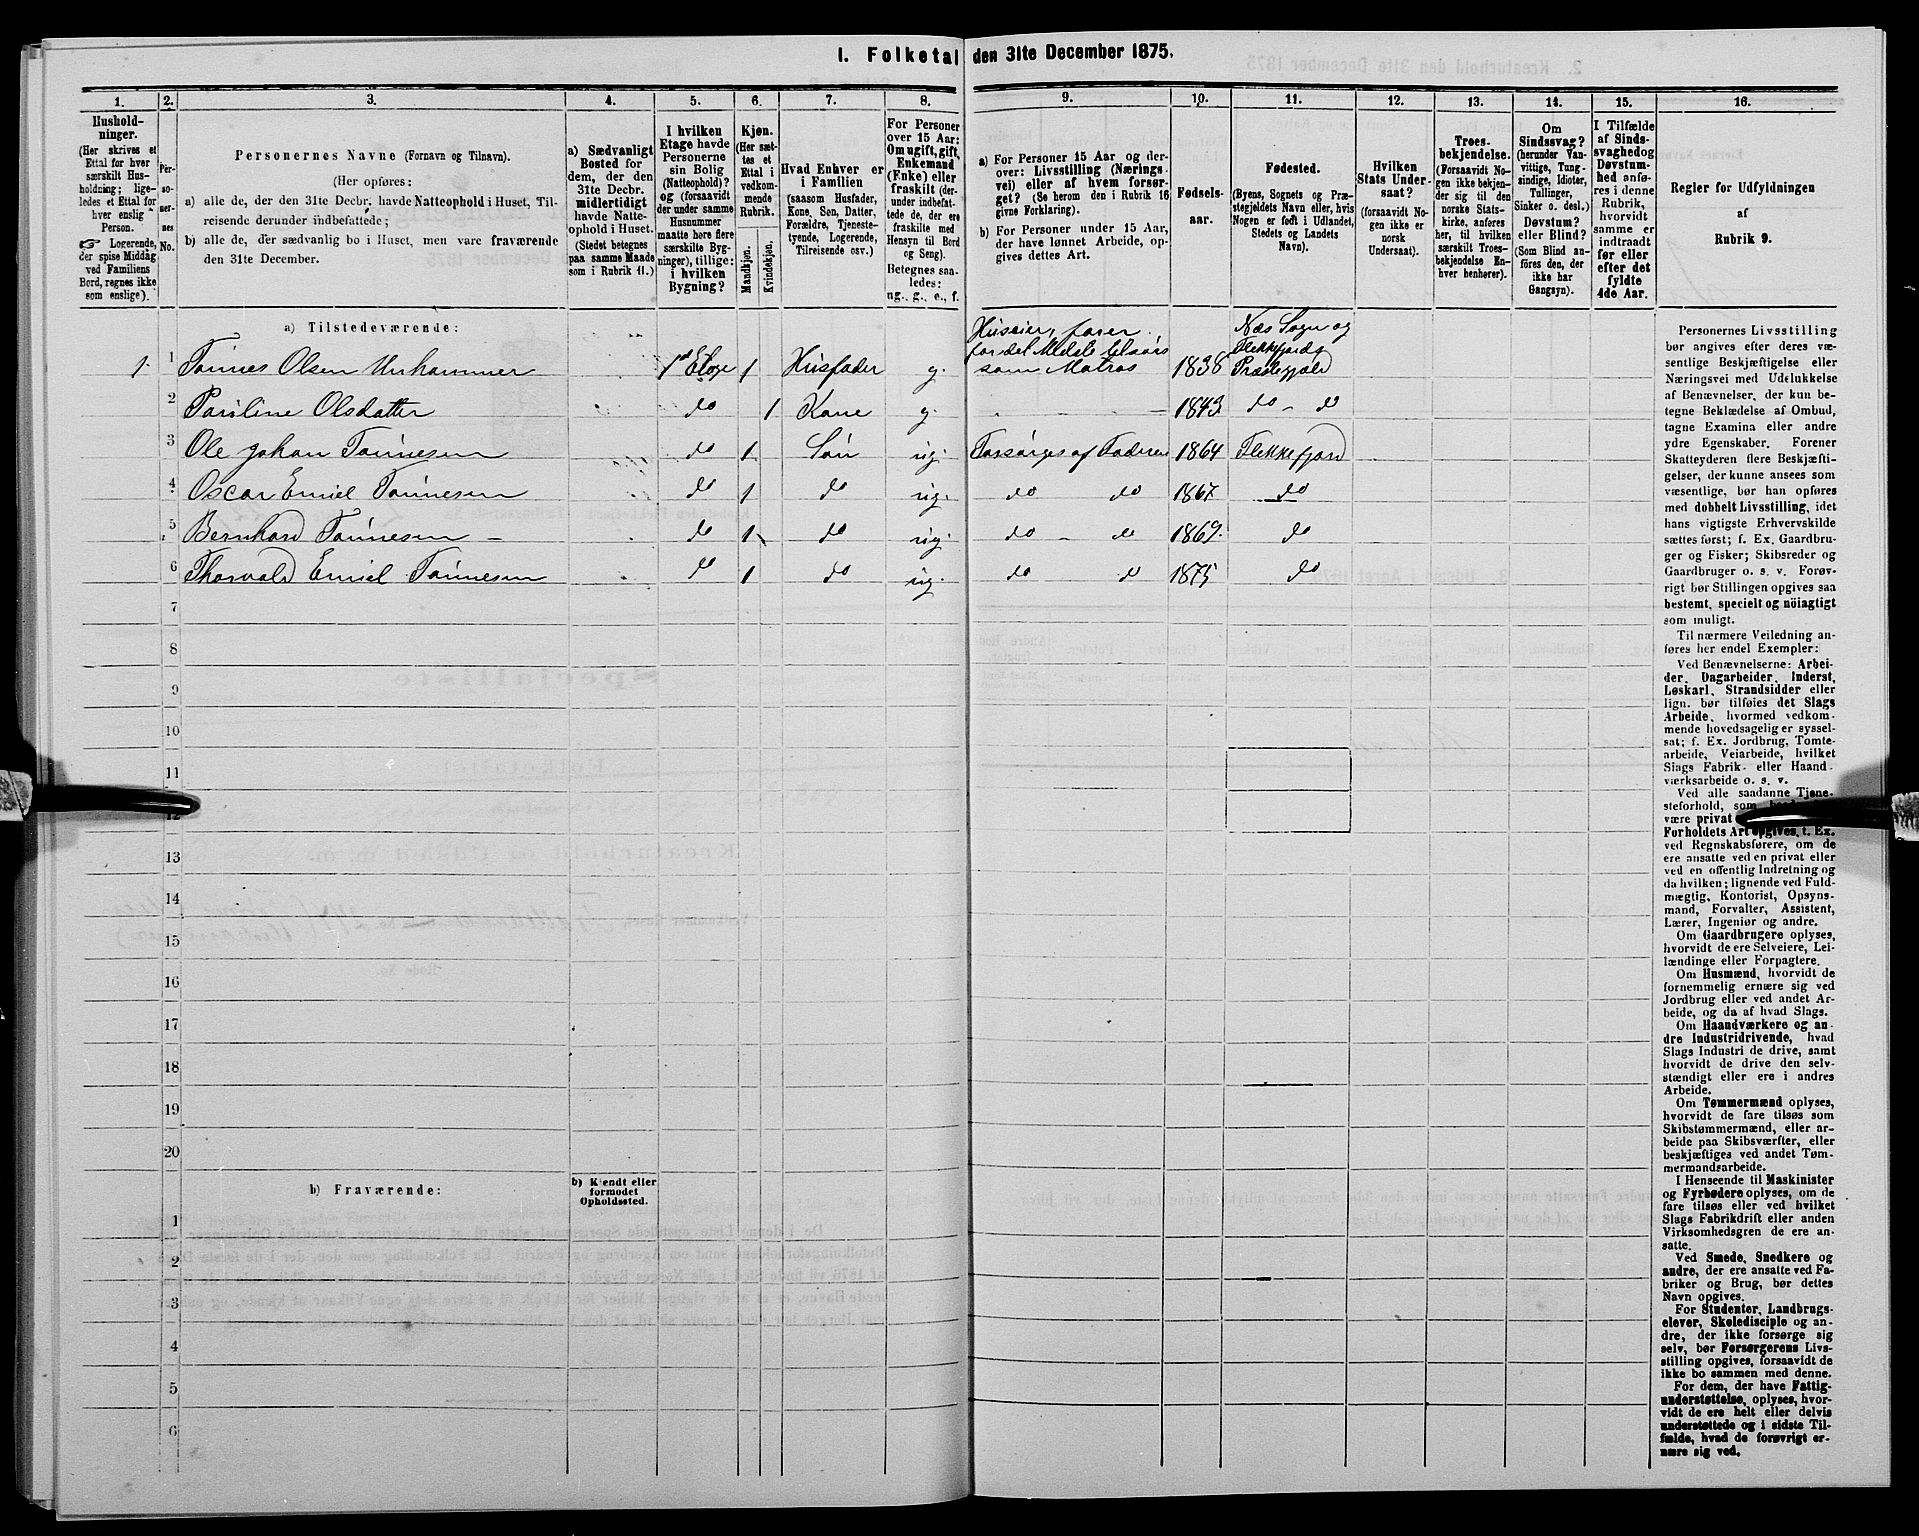 I. Folketal den 31te December 1875.
1. 2. 3. 4. 5. 6. 7. 8. 9. 10. 11. 12. 13. 14. 15. 16.
Hushold-
ninger.
(Her skrives et
Ettal for hver
særskilt Hus-
holdning; lige-
ledes et Ettal for
hver enslig
Person.
☞ Logerende,
der spise Middag
ved Familiens
Bord, regnes ikke
som enslige).
Per-
so-
ner-
nes
No.
Personernes Navne (Fornavn og Tilnavn).
(Her opføres:
a) alle de, der den 31te Decbr. havde Natteophold i Huset, Til-
reisende derunder indbefattede;
b) alle de, der sædvanlig bo i Huset, men vare fraværende
den 31te December.
a) Sædvanligt
Bosted for
dem, der den
31te Decbr.
midlertidigt
havde Natte-
ophold i Huset.
(Stedet betegnes
paa samme Maade
som i Rubrik 11.)
I hvilken
Etage havde
Personerne
sin Bolig
(Natteophold)?
og (forsaavidt
der under samme
Husnummer
maatte høre flere
særskilte Byg-
ninger), tillige:
i hvilken
Bygning?
Kjøn.
(Her sæt-
tes et
Ettal i
vedkom-
mende
Rubrik.
Mandkjøn.
Kvindekjøn.
Hvad Enhver er
i Familien
(saasom Husfader,
Kone, Søn, Datter,
Forældre, Tjeneste-
tyende, Logerende,
Tilreisende osv.)
For Personer
over 15 Aar:
Om ugift, gift,
Enkemand
(Enke) eller
fraskilt (der-
under indbefat-
tede de, der ere
fraskilte med
Hensyn til Bord
og Seng).
Betegnes saa-
ledes:
ug., g., e., f.
a) For Personer 15 Aar og der-
over: Livsstilling (Nærings-
vei) eller af hvem forsør-
get? (Se herom den i Rubrik 16
givne Forklaring).
b) For Personer under 15 Aar,
der have lønnet Arbeide, op-
gives dettes Art.
Fødsels-
aar.
Fødested.
(Byens, Sognets og Præ-
stegjeldets Navn eller, hvis
Nogen er født i Udlandet,
Stedets og Landets
Navn).
Hvilken
Stats Under-
saat?
(forsaavidt No-
gen ikke er
norsk
Undersaat).
Troes-
bekjendelse.
(Forsaavidt No-
gen ikke bekjen-
der sig til den
norske Stats-
kirke, anføres
her, til hvilken
særskilt Troes-
bekjendelse En-
hver henhører).
Om
Sindssvag?
(herunder Van-
vittige, Tung-
sindige, Idioter,
Tullinger,
Sinker o. desl.)
Døvstum?
eller Blind?
(Som Blind an-
føres den, der
ikke har
Gangsyn).
I Tilfælde
af Sinds-
svaghed og
Døvstum-
hed anfø-
res i denne
Rubrik,
hvorvidt
samme er
indtraadt
før eller
efter det
fyldte
4de Aar.
Regler for Udfyldningen
af
Rubrik 9.
a) Tilstedeværende:
1. 1 Tønnes Olsen Unhammer 1st Etage 1 Husfader g. Huseier, farer for det Meste tilsøes som Matros 1838 Næs Sogn og Flekkefjords Præstegjæld
2 Pauline Olsdatter do 1 Kone g. 1843 do - do
3 Ole Johan Tønnesen do 1 Søn ug. Forsørges af Faderen 1864 Flekkefjord
4 Oscar Emiel Tønnesen do 1 do ug. do do 1867. do
5 Bernhard Tønnesen - do 1 do ug. do - do 1869. do
6 Thorvald Emiel Tønnesen do 1 do ug. do do 1875 do
7
8
9
10
11
12
13
14
15
16
17
18
19
20
b) Fraværende:
b) Kjendt eller
formodet
Opholdssted.
1
2
3
4
5
6
Personernes Livsstilling
bør angives efter deres væ-
sentlige Beskjæftigelse eller
Næringsvei med Udelukkelse
af Benævnelser, der kun be-
tegne Beklædelse af Ombud,
tagne Examina eller andre
ydre Egenskaber. Forener
Skatteyderen flere Beskjæfti-
gelser, der kunne ansees som
væsentlige, bør han opføres
med dobbelt Livsstilling, idet
hans vigtigste Erhvervskilde
sættes først; f. Ex. Gaardbru-
ger og Fisker; Skibsreder og
Gaardbruger o. s. v. Forøv-
rigt bør Stillingen opgives saa
bestemt, specielt og nöiagtigt
som muligt.
Til nærmere Veiledning an-
føres her endel Exempler:
Ved Benævnelserne: Arbei-
der, Dagarbeider, Inderst,
Løskarl, Strandsidder eller
lign. bør tilføies det Slags
Arbeide, hvormed vedkom-
mende hovedsagelig er syssel-
sat; f. Ex. Jordbrug, Tomte-
arbeide, Veiarbeide, hvilket
Slags Fabrik- eller Haand-
værksarbeide o. s. v.
Ved alle saadanne Tjene-
steforhold, som
være privat
Forholdets Art opgives, t. Ex.
ved Regnskabsførere, om de
ere ansatte ved en privat eller
ved en offentlig Indretning og
da hvilken; lignende ved Fuld-
mægtig, Kontorist, Opsyns-
mand, Forvalter, Assistent,
Lærer, Ingeniør og andre.
Om Gaardbrugere oplyses,
hvorvidt de ere Selveiere, Lei-
lændinge eller Forpagtere.
Om Husmænd, hvorvidt de
fornemmelig ernære sig ved
Jordbrug eller ved andet Ar-
beide, og da af hvad Slags.
Om Haandværkere og an-
dre Industridrivende, hvad
Slags Industri de drive, samt
hvorvidt de drive den selv-
stændigt eller ere i andres
Arbeide.
Om Tømmermænd oplyses,
hvorvidt de fare tilsøs som
Skibstømmermænd, eller ar-
beide paa Skibsværfter, eller
beskjæftiges ved andet Tøm-
mermandsarbeide.
I Henseende til Maskinister
og Fyrbødere oplyses, om de
fare tilsøs eller ved hvilket
Slags Fabrikdrift eller anden
Virksomhedsgren de ere an-
satte.
Ved Smede, Snedkere og
andre, der ere ansatte ved Fa-
briker og Brug, bør dettes
Navn opgives.
For Studenter, Landbrugs-
elever, Skoledisciple og an-
dre, der ikke forsørge sig
selv, bør Forsørgerens Livs-
stilling opgives, forsaavidt de
ikke bo sammen med denne.
For dem, der have Fattig-
understøttelse, oplyses, hvor-
vidt de ere helt eller delvis
understøttede og i sidste Til-
fælde, hvad de forøvrigt er-
nære sig ved.